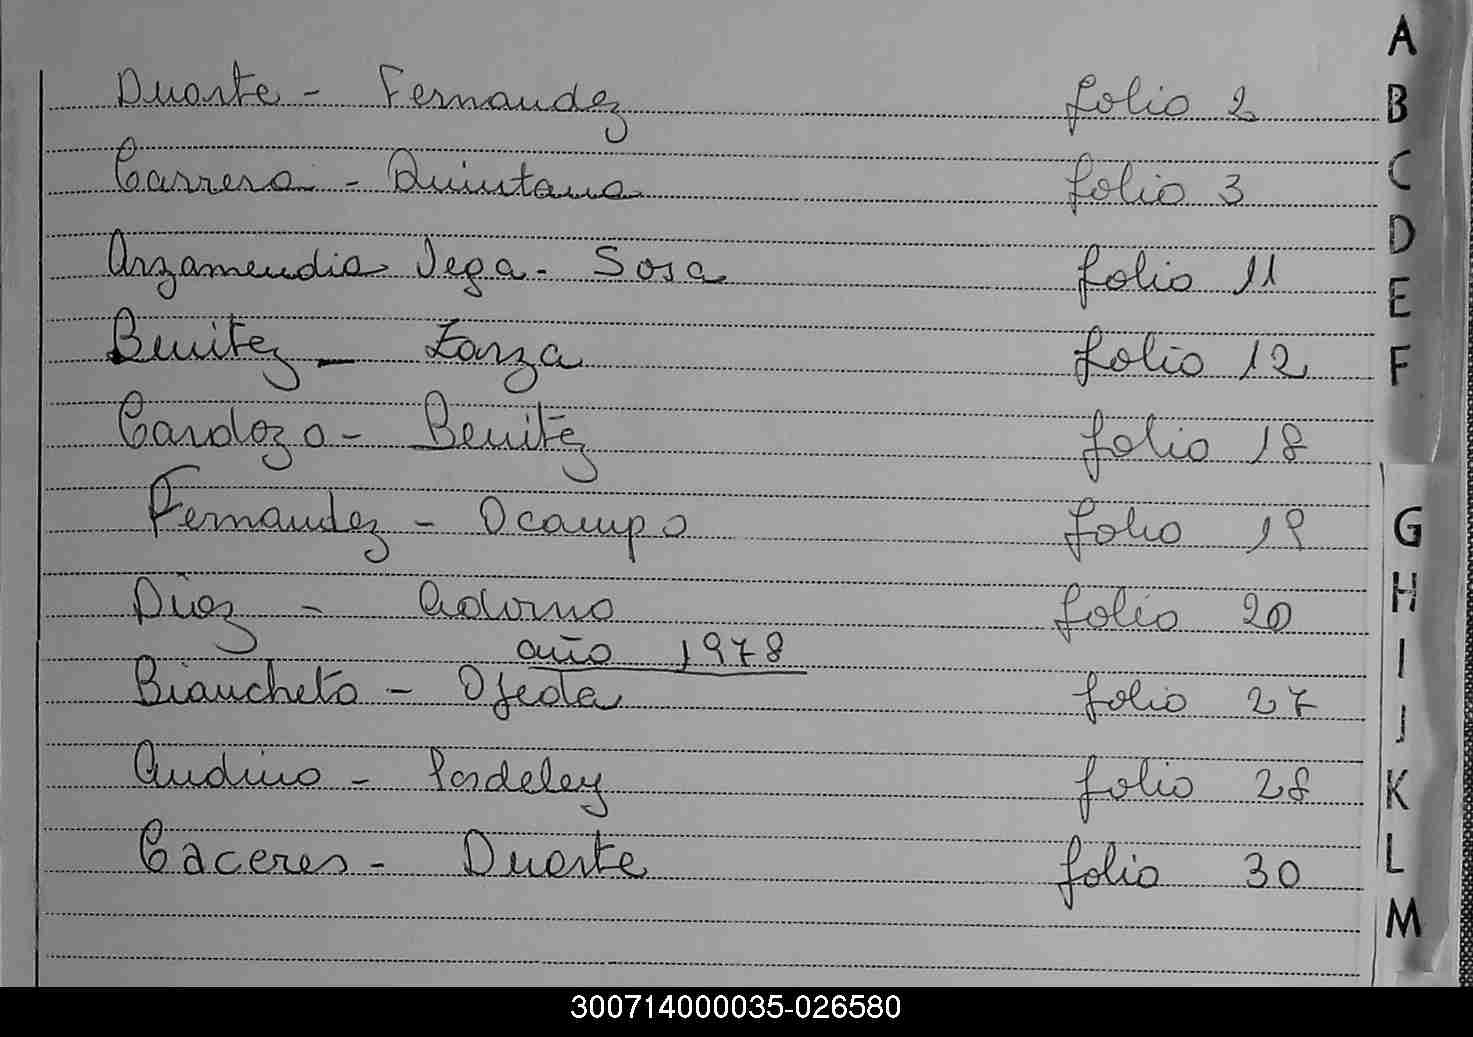 Duarte - Fernandez folio 2
Carrera - Quintana folio 3
Arzamendia Vega - Sosa folio 11
Benitez - Zarza folio 12
Cardozo - Benitez folio 18
Fernandez - Ocampo folio 19
Diaz - Adorno folio 20
año 1978
Biancheto - Ojeda folio 27
Audino - folio 28
Caceres - Duarte folio 30
A
B
C
D
E
F
G
H
I
J
K
L
M
300714000035-026580